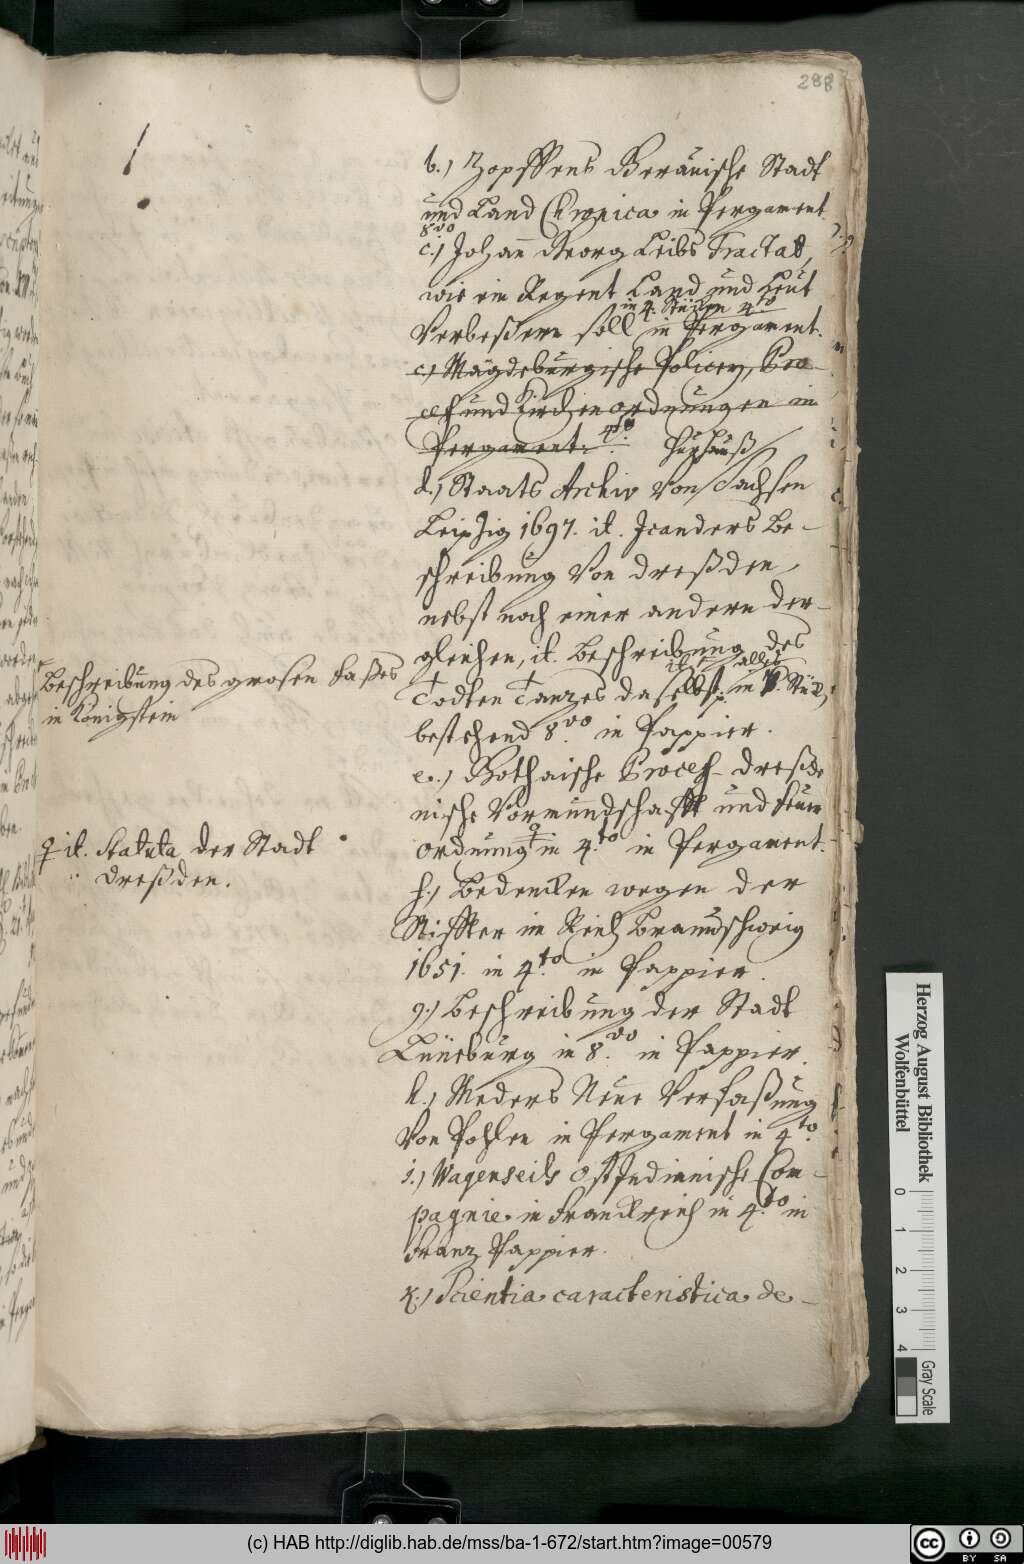 288
b.) Zopffens Gerauische Stadt
und Land Chronica in Pergament.
8vo
c.) Johann Georg Leibs Tractat,
wie ein Regent Land und Leut
in 4. Stücken 4to
Verbeßern soll in Pergament.
c.) Magdeburgische Policey, Pro-
ceß und Kirchenordnungen in
Pergament. 4to
d.) Staats Archiv von Sachsen
Leipzig 1697. it. Icanders Be-
schreibung von dreßden,
nebst noch einer andern der-
gleichen, it. Beschreibung des
alles
Todten Tanzes daselbst, in Stück
bestehend 8vo in Pappier.
Beschreibung des grosen Faßes
in Königstein
e.) Gothaische Proceß- dreßde
nische Vormundschafft und
ordnung in 4to in Pergament.
it. Statuta der Stadt
dreßden.
f.) Bedencken wegen der
Stiffter im Reich Braunschweig
1651. in 4to in Pappier.
g.) Beschreibung der Stadt
Lüneburg in 8vo in Pappier.
h.) Meders Neue Verfaßung
Von Pohlen in Pergament in 4to.
i.) Wagenseils Ost Indianische Com-
pagnie in Franckreich in 4to in
Franz Pappier.
k.) Scientia caracteristica de-
Herzog August Bibliothek
Wolfenbüttel
0 1 2 3 4
Gray Scale
(c) HAB http://diglib.hab.de/mss/ba-1-672/start.htm?image=00579
cc BY SA